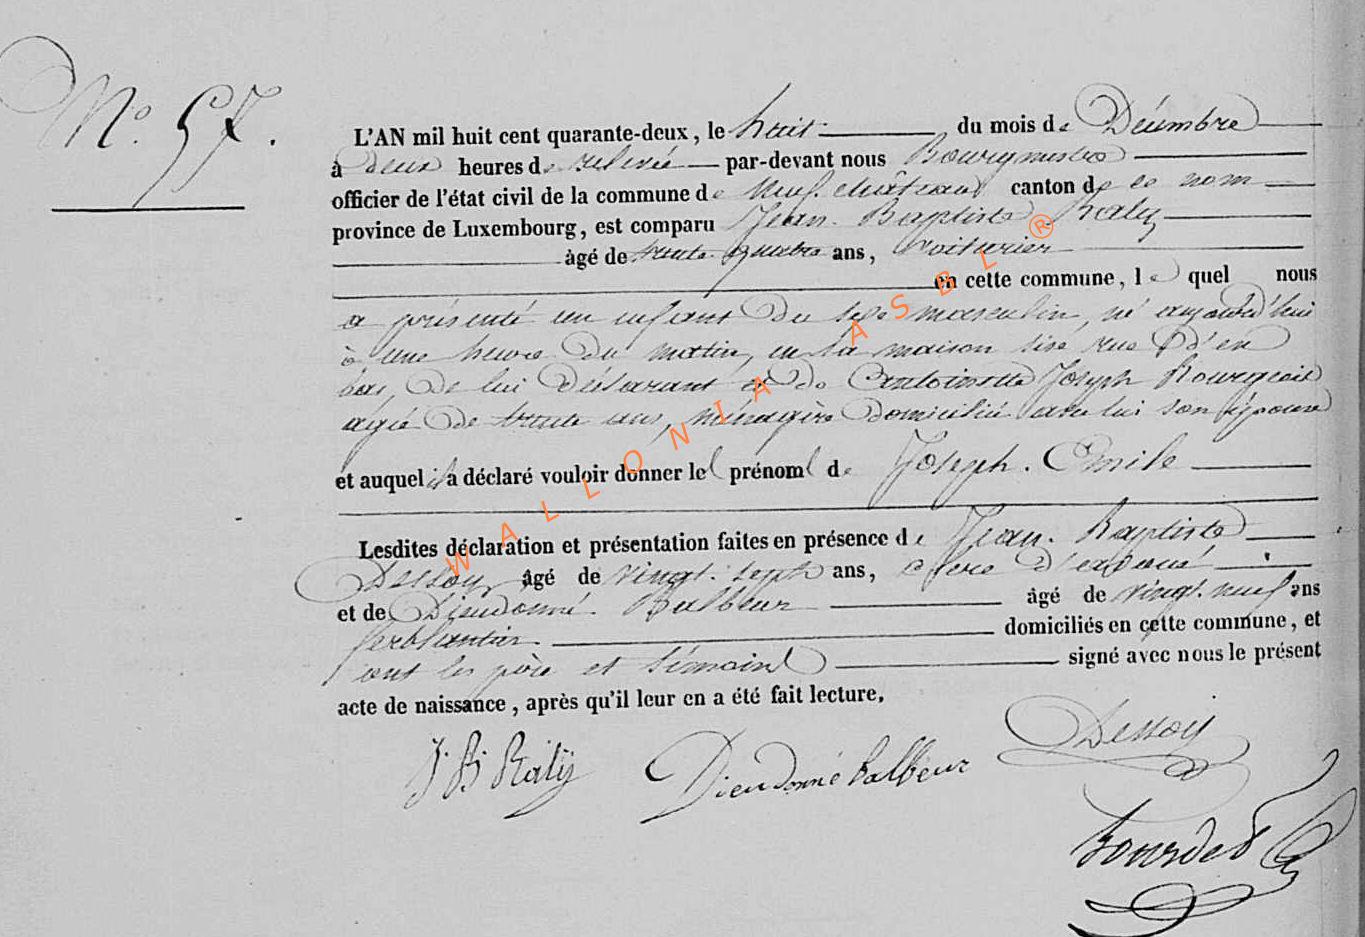 N° 57.
L'AN mil huit cent quarante-deux, le huit du mois de Décembre
à deux heures de relevée par-devant nous Bourgmestre
officier de l'état civil de la commune de Neufchâteau canton de ce nom
province de Luxembourg, est comparu Jean-Baptiste Raly
âgé de trente quatre ans, voiturier
en cette commune, lequel nous
a présenté un enfant du sexe masculin, né aujourd'hui
à une heure du matin, en sa maison sise rue d'en
bas, de lui déclarant et de Antoinette Joseph Bourgeois
agée de trente ans, ménagère domiciliée avec lui son épouse
et auquel il a déclaré vouloir donner le prénom de Joseph. Emile
Lesdites déclaration et présentation faites en présence de Jean-Baptiste
Dessoy âgé de vingt-sept ans, clerc d'avoué
et de Dieudonné Balbeur âgé de vingt-neuf ans
ferblantier domiciliés en cette commune, et
ont les père et témoins signé avec nous le présent
acte de naissance, après qu'il leur en a été fait lecture.
J B Raly Dieudonné balbeur Dessoy
WALLONIA ASBL ®